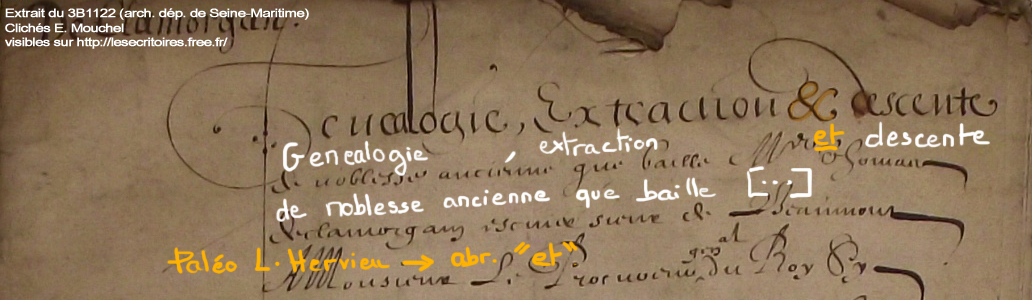 Extrait du 3B1122 (arch. dép. de Seine-Maritime)
Clichés E. Mouchel
visibles sur http://lesecritoires.free.fr/
Genealogie, Extraction & descente
Genealogie, extraction et descente
de noblesse ancienne que baille
de noblesse ancienne que baille [...]
declamorgam sieur de
Paléo L. Hervieu → abr. "et"
Monsieur Le Procureur gnal du Roy